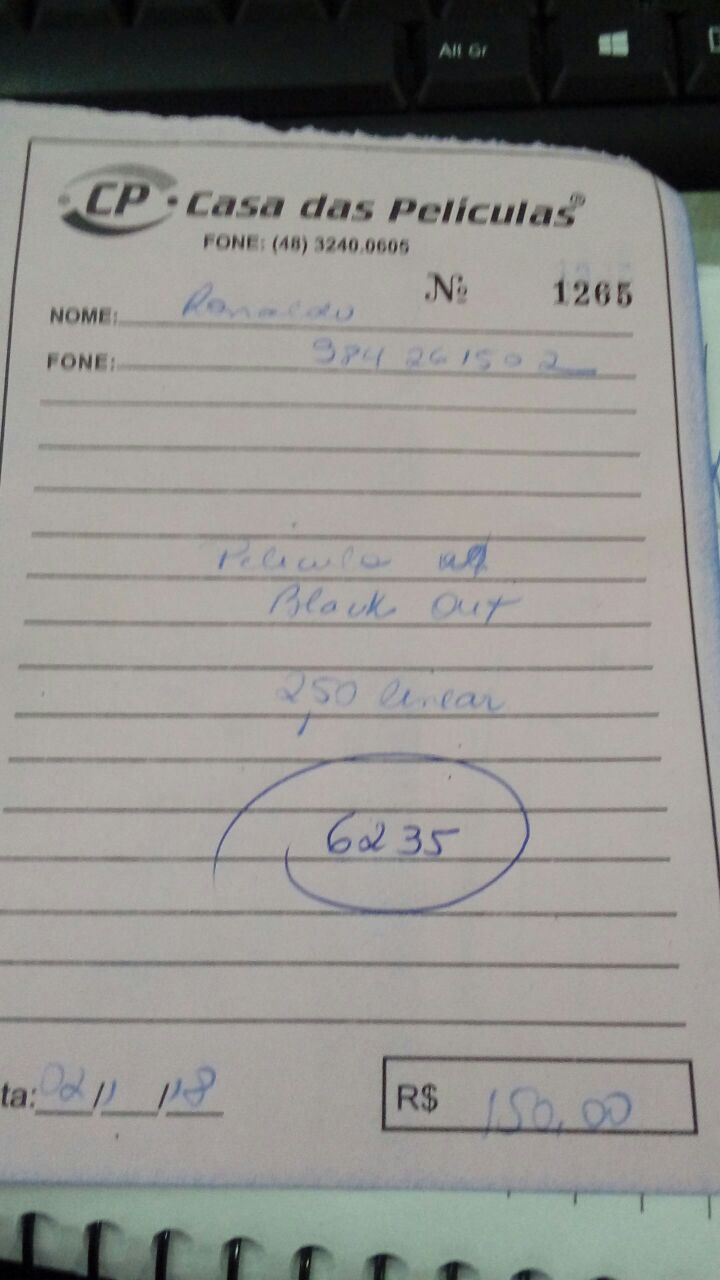 Alt Gr
CP Casa das Películas®
FONE: (48) 3240.0605
Nº 1265
NOME: Ronaldo
FONE: 984 261502
Película
Black Out
2,50 linear
6235
ta: 02/ /18
R$ 150,00